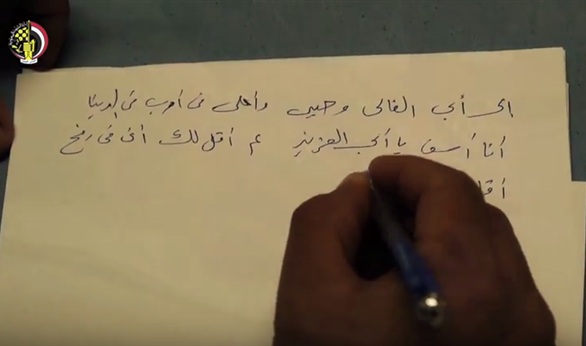 إلى أبي الغالى وحبيبى وأغلى من أ فى الدنيا
أنا أسف يا أبى العزيز لم أقل لك أنى فى رفح
أقا